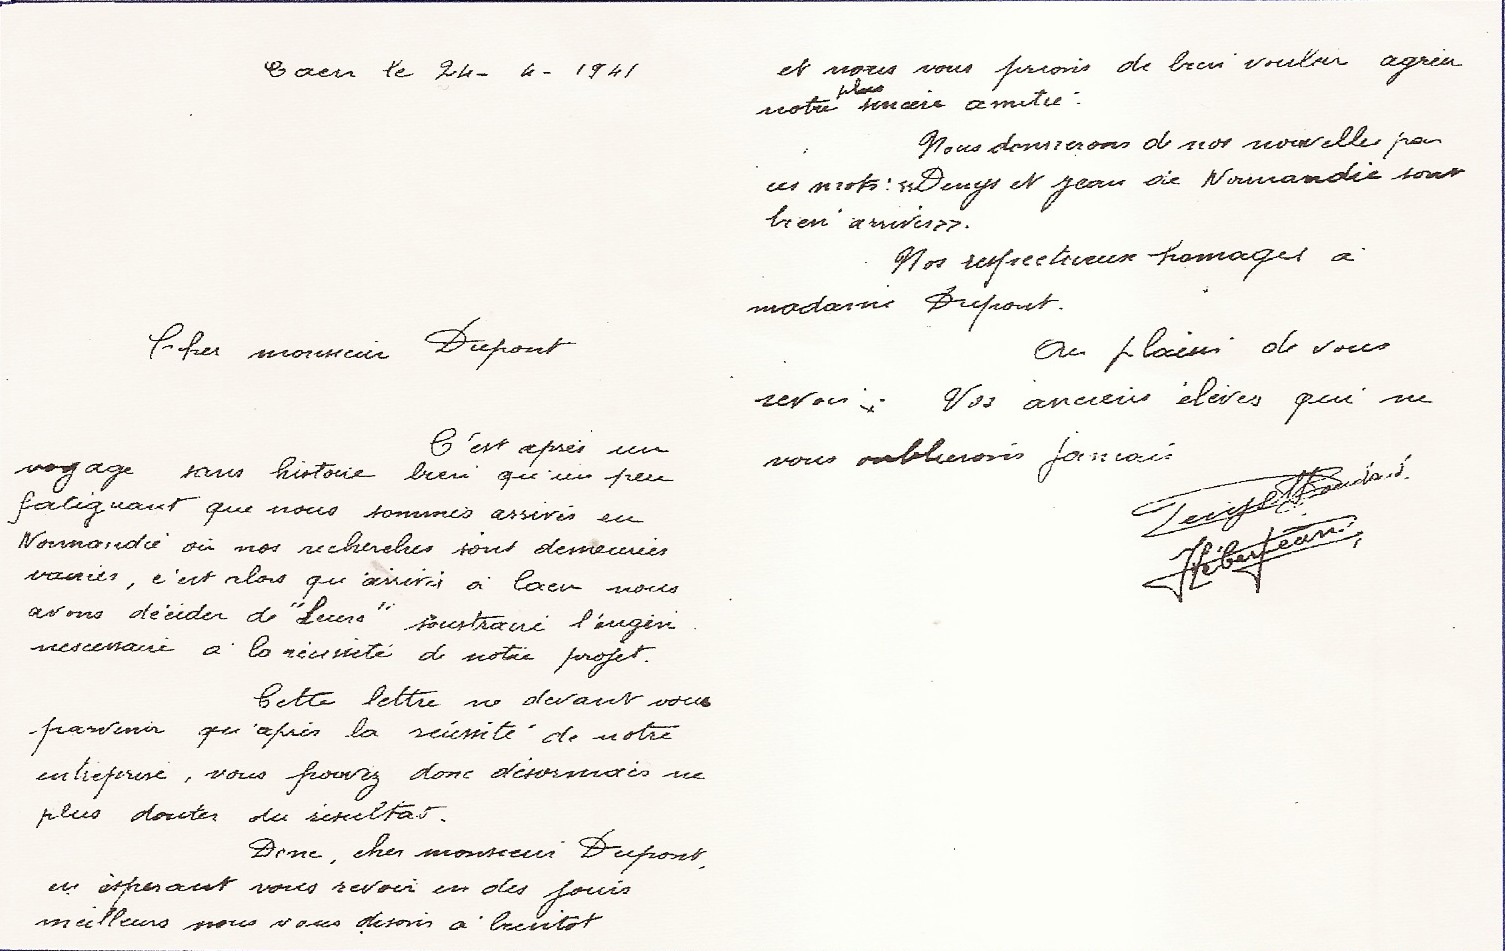 Caen le 24- 4- 1941
Cher monsieur Dupont
C'est après un
voyage sans histoire bien qu'un peu
fatiguant que nous sommes arrivés en
Normandie où nos recherches sont demeurées
vaines, c'est alors qu'arrivés à Caen nous
avons décider de "Leurs" soustraire l'engin
nescessaire à la réussite de notre projet.
Cette lettre ne devant vous
parvenir qu'après la réussite de notre
entreprise, vous pouvez donc désormais ne
plus douter du résultat.
Donc, cher monsieur Dupont,
en ésperant vous revoir en des jours
meilleurs nous vous disons à bientot
et nous vous prions de bien vouloir agréer
notre plus sincère amitié.
Nous donnerons de nos nouvelles par
ces mots: «Denys et Jean de Normandie sont
bien arrivés».
Nos respectueux homages à
madame Dupont.
Au plaisir de vous
revoir. Vos anciens élèves qui ne
vous oublierons jamais
Denys Boudard.
Hébert Jean